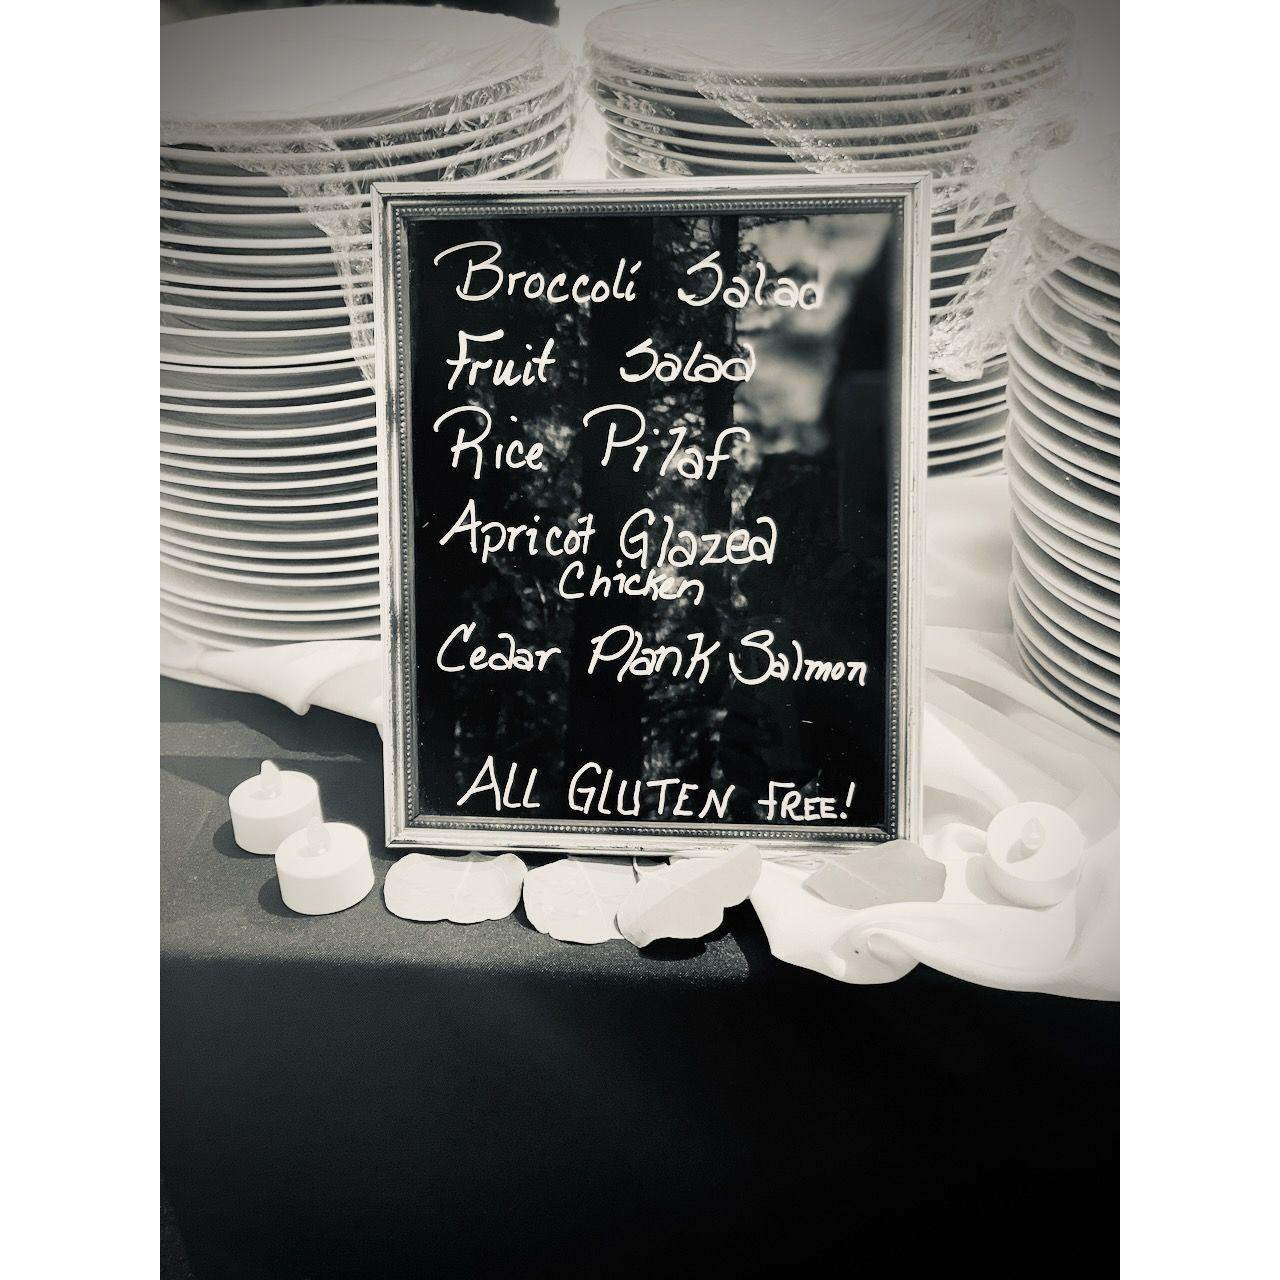 Broccoli Salad
Fruit Salad
Rice Pilaf
Apricot Glazed
Chicken
Cedar Plank Salmon
ALL GLUTEN FREE!